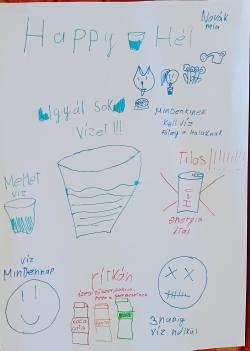 Novák
mia
Happy Hét
Igyál Sok
vizet!!!
Mindenkinek
kell víz
főleg a halaknak
Mehet
víz
Tilos!!!!!!!
Hell
energia
ital
víz
Mindennap
ritkán
coca
cola
3 napig
víz nélkül